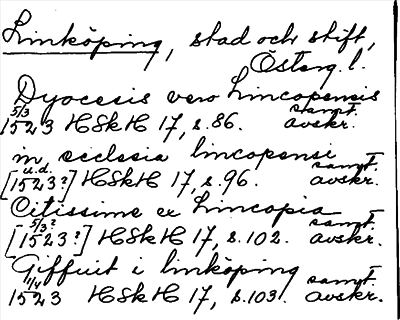 Linköping, stad och stift,
Österg. l.
Dyocesis vero Lincopensis
5/3 samt.
1523 HSkH 17, s. 86. avskr.
in ecclesia lincopensi
u.d. samt.
[1523?] HSkH 17, s. 96. avskr.
Citissime ex Lincopia
5/3? samt.
[1523?] HSkH 17, s. 102. avskr.
Giffuit i linköping
1/4 samt.
1523 HSkH 17, s. 103. avskr.